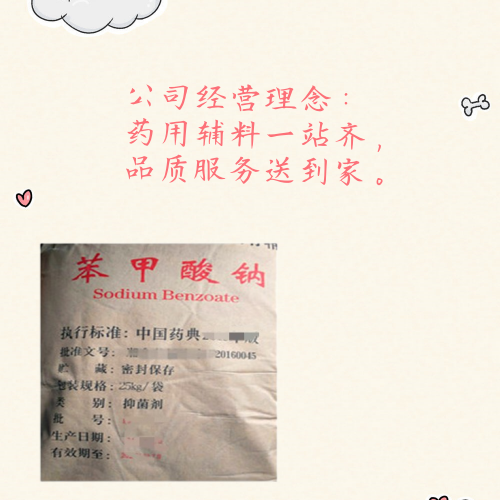 公司经营理念：
药用辅料一站齐，
品质服务送到家。
苯甲酸钠
Sodium Benzoate
执行标准：中国药典
批准文号：20160045
贮藏：密封保存
包装规格：25kg/袋
类别：抑菌剂
批号：
生产日期：
有效期至：